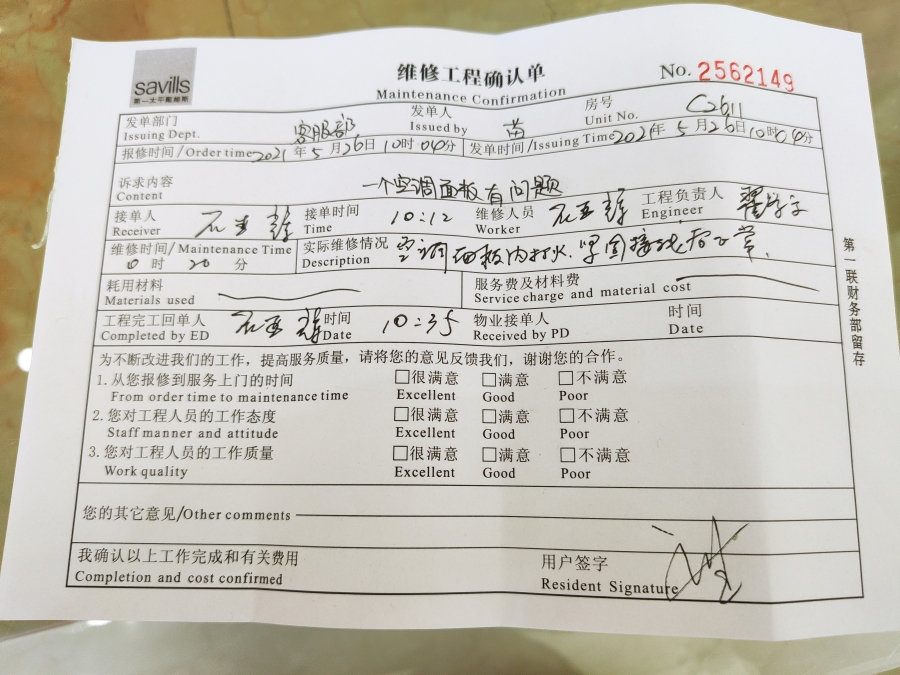 savills
第一太平戴维斯
维修工程确认单
Maintenance Confirmation
No. 2562149
发单部门 客服部 发单人 苗 房号 C2611
Issuing Dept. Issued by Unit No.
报修时间/Order time 2021年5月26日10时04分 发单时间/Issuing Time 2021年5月26日10时04分
诉求内容 一个空调面板有问题
Content
接单人 石 接单时间 10:12 维修人员 石 工程负责人
Receiver Time Worker Engineer
维修时间/Maintenance Time 实际维修情况 空调面板内打火.紧固接线后正常.
0时20分 Description
耗用材料 服务费及材料费
Materials used Service charge and material cost
工程完工回单人 石 时间 10:35 物业接单人 时间
Completed by ED Date Received by PD Date
为不断改进我们的工作，提高服务质量，请将您的意见反馈我们，谢谢您的合作。
1.从您报修到服务上门的时间 □很满意 □满意 □不满意
From order time to maintenance time Excellent Good Poor
2.您对工程人员的工作态度 □很满意 □满意 □不满意
Staff manner and attitude Excellent Good Poor
3.您对工程人员的工作质量 □很满意 □满意 □不满意
Work quality Excellent Good Poor
您的其它意见/Other comments
我确认以上工作完成和有关费用 用户签字
Completion and cost confirmed Resident Signature
第一联财务部留存